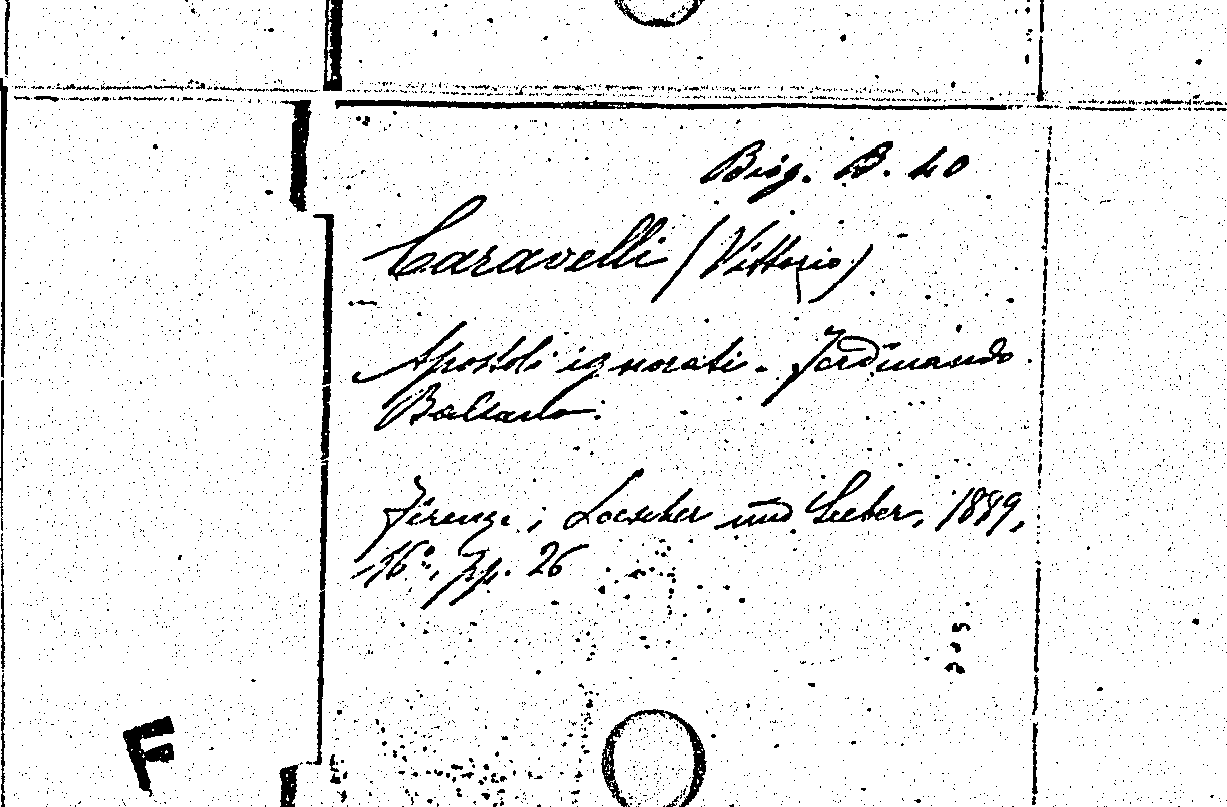 Biog. B. 40
Caravelli (Vittorio)
Apostoli ignorati. Ferdinando
Balsano.
Firenze, Loescher und Seeber, 1889,
16°, pp. 26
F